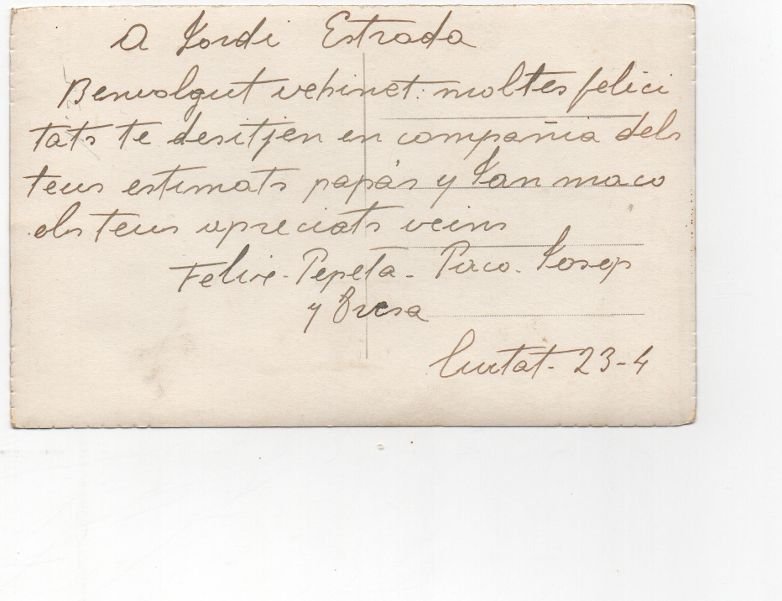 A Jordi Estrada
Benvolgut vehinet: moltes felici
tats te desitjen en compañia dels
teus estimats papás y Jan maco
els teus apreciats veins
Felive - Pepeta - Paco - Josep
y
Ciutat - 23-4